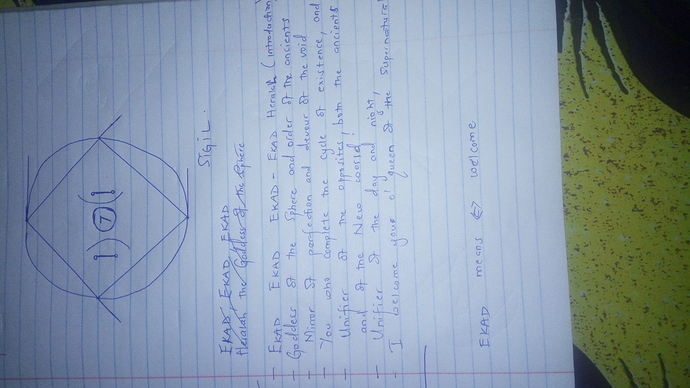 7
SIGIL.
EKAD, EKAD, EKAD
Heralah the Goddess of the Sphere
- EKAD EKAD EKAD - EKAD Heralah (introduction)
- Goddess of the Sphere and order of the ancients
- Mirror of perfection and devour of the void
- You who complete the cycle of existence, and
- Unifier of the opposites, both the ancients
and of the New world!
- Unifier of the day and night,
- I welcome you o' queen of the Supernatural
EKAD means <=> welcome